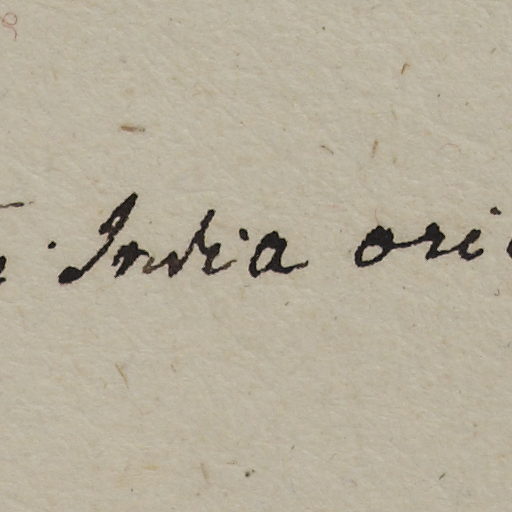 India ori